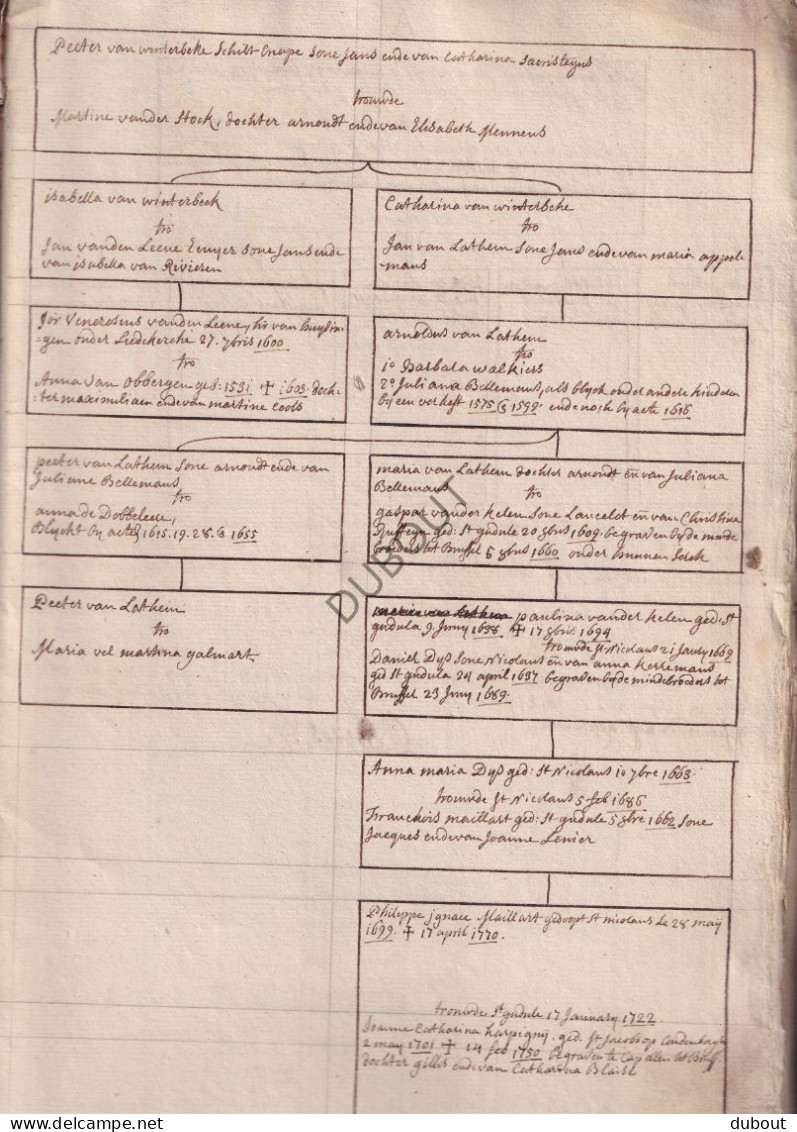 Peeter van winterbeke Schilt Cnape sone Jans ende van Catharina Sacristeyns
trouwde
Martine vander Stock, dochter arnoudt ende van Elisabeth Mennens
isabella van winterbeek
tro
Jan vanden Leene Escuyer sone Jans ende
van isabella van Rivieren
Catharina van winterbeke
tro
Jan van Lathem sone Jans ende van maria appel
-mans
Jor vanden Leene, hr van buysin-
-gen onder Leedekercke 27. 7bris 1600
tro
Anna van Obbergen geb: 1531 + 1603. doch-
-ter maximiliaen ende van martine cools
arnoldus van Lathem
tro
1o Barbara walkiers
2o Juliana Bellemans, als blyck onder andere kinderen
by een verheft 1575 & 1599. ende noch by acte 1616
peeter van Lathem sone arnoudt ende van
Juliane Bellemans
tro
anna de Dobbeleere,
Blyckt by acte 1615. 19. 28. & 1655
maria van Lathem dochter arnoudt en van Juliana
Bellemans
tro
gaspar vander kelen sone Lancelot en van Christina
ged: St gudule 20 8bris 1609. begraven by de minde
broeders tot Brussel 5 8bris 1660 onder hunnen
Peeter van Lathem
tro
Maria vel martina galmart
maria van Lathem paulina vander kelen ged: St
gudula 9. Juny 1638 + 17 8bris 1694
trouwde St Nicolaus 21 1669
Daniel Dys sone Nicolaus en van anna kerremans
ged St gudula 24 april 1637 begraven by de mindebroeders tot
Brussel 23 Juny 1689.
Anna maria Dys ged: St Nicolaus 10 7bre 1663.
trouwde St Nicolaus 5 feb 1686
Franchois maillart ged: St gudule 5 8bre 1662 sone
Jacques ende van Joanne Lenier
Philippe ignace Maillart gedoopt St nicolaus Le 28 maij
1699. + 17 april 1770.
trouwde St gudule 17 January 1722.
Joanne Catharina harpignij. ged. St Jacobs op Caudenbergh
2 may 1701 + 14 feb 1750 begraven te Capellen tot Bruss.
dochter gillis ende van Catharina Blaise
DUBOUT
dubout
dubout